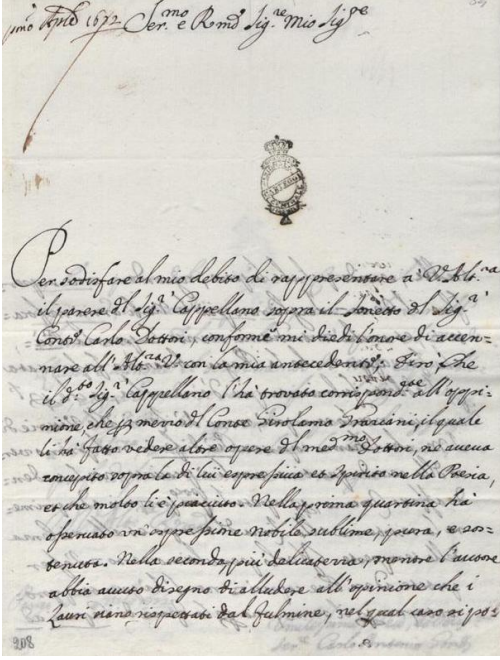 primo Aprile 1672 Ser.mo e Rmo Sig.re Mio Sig.re
Per sodisfare al mio debito di rappresentare à V. Alt.za
il parere del Sig.r Cappellano sopra il Sonetto del Sig.r
Conte Carlo Dottori, conforme mi diedi l'onore di accen-
nare all'Alt.za V. con la mia antecedente; Dirò che
il d.to Sig.r Cappellano l'hà trovato corrispond.te all'oppi-
nione, che per mezzo del Conte Girolamo Graziani, il quale
li hà fatto vedere altre opere del med.mo Dottori, ne aveva
concepito sopra la di lui espressiva et spirito nella Poesia,
et che molto li è piaciuto. Nella prima quartina hà
osservato un'espressione nobile, sublime, pura, e sos-
tenuta. Nella seconda, più delicatezza, mentre l'autore
abbia avuto disegno di alludere all'opinione che i
Lauri siano rispettati dal fulmine, nel qual caso si po-
208